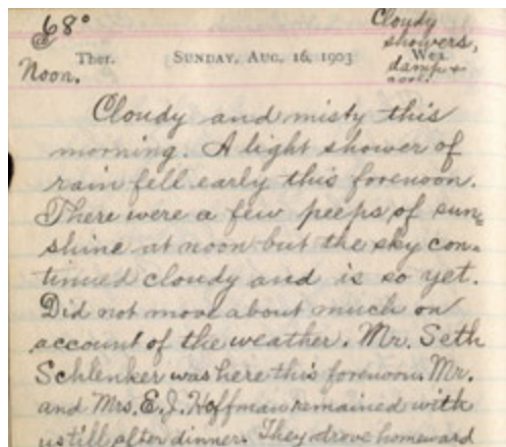 68°
@
Noon.
Ther.
SUNDAY, AUG. 16, 1903
Wea.
Cloudy
showers,
damp &
cool.
Cloudy and misty this
morning. A light shower of
rain fell early this forenoon.
There were a few peeps of sun-
shine at noon but the sky con-
tinued cloudy and is so yet.
Did not move about much on
account of the weather. Mr. Seth
Schlenker was here this forenoon. Mr.
and Mrs. E. J. Hoffman remained with
us till after dinner. They drove homeward